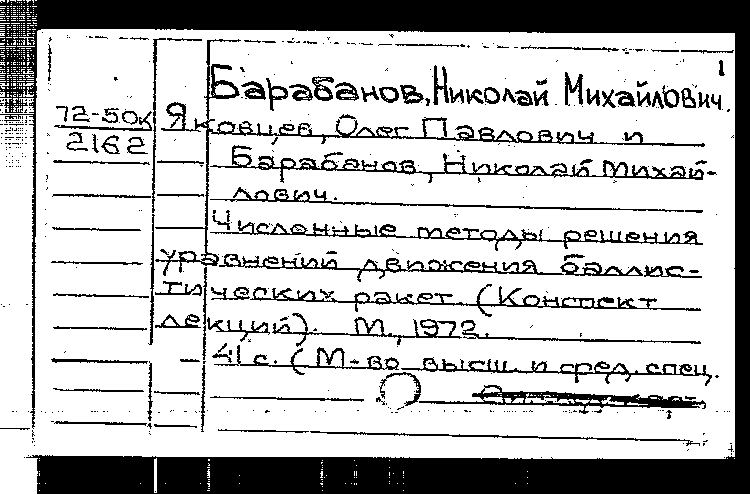 1
Барабанов, Николай Михайлович.
72-50к Яковцев, Олег Павлович и
2162 Барабанов, Николай Михай-
лович.
Численные методы решения
уравнений движения баллис-
тических ракет. (Конспект
лекций). М., 1972.
41 с. (М-во высш. и сред. спец.